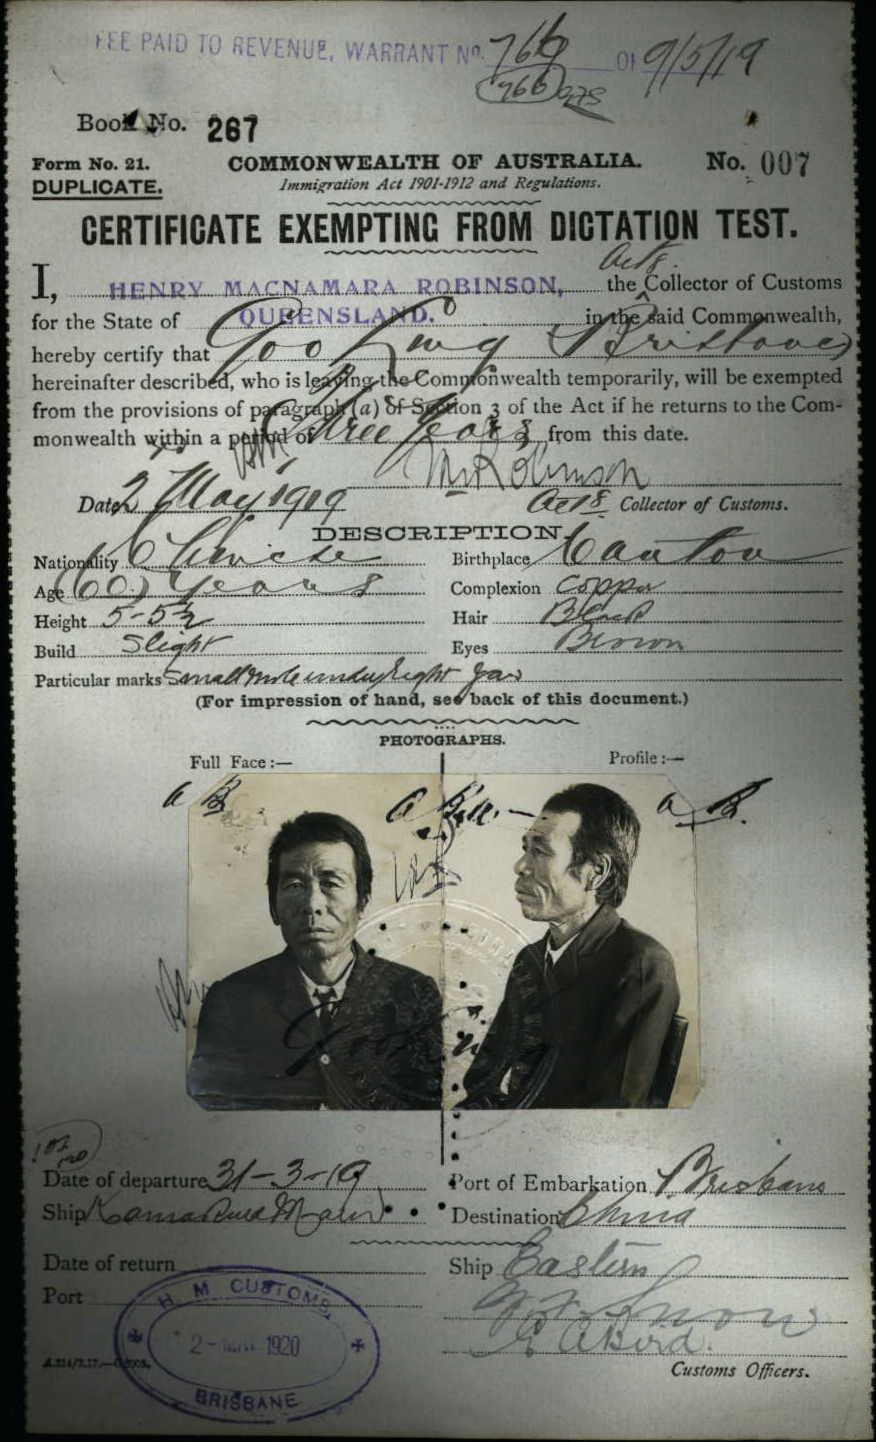 FEE PAID TO REVENUE, WARRANT No. 766 OF 9/5/19
766
Book No. 267
Form No. 21. COMMONWEALTH OF AUSTRALIA. No. 007
DUPLICATE. Immigration Act 1901-1912 and Regulations.
CERTIFICATE EXEMPTING FROM DICTATION TEST.
I, HENRY MACNAMARA ROBINSON, the Collector of Customs
for the State of QUEENSLAND. in the said Commonwealth,
hereby certify that Goo King (Brisbane)
hereinafter described, who is leaving the Commonwealth temporarily, will be exempted
from the provisions of paragraph (a) of Section 3 of the Act if he returns to the Com-
monwealth within a period of Three Years from this date.
HMRobinson
Date 2 May 1919 Collector of Customs.
DESCRIPTION.
Nationality Chinese Birthplace Canton
Age (60) years Complexion Copper
Height 5-5½ Hair Black
Build Slight Eyes Brown
Particular marks Small mole under right jaw
(For impression of hand, see back of this document.)
PHOTOGRAPHS.
Full Face:— Profile:—
Date of departure 31-3-19 Port of Embarkation Brisbane
Ship Destination China
Date of return Ship Eastern
Port
H. M. CUSTOMS.
2- 1920
BRISBANE
Customs Officers.